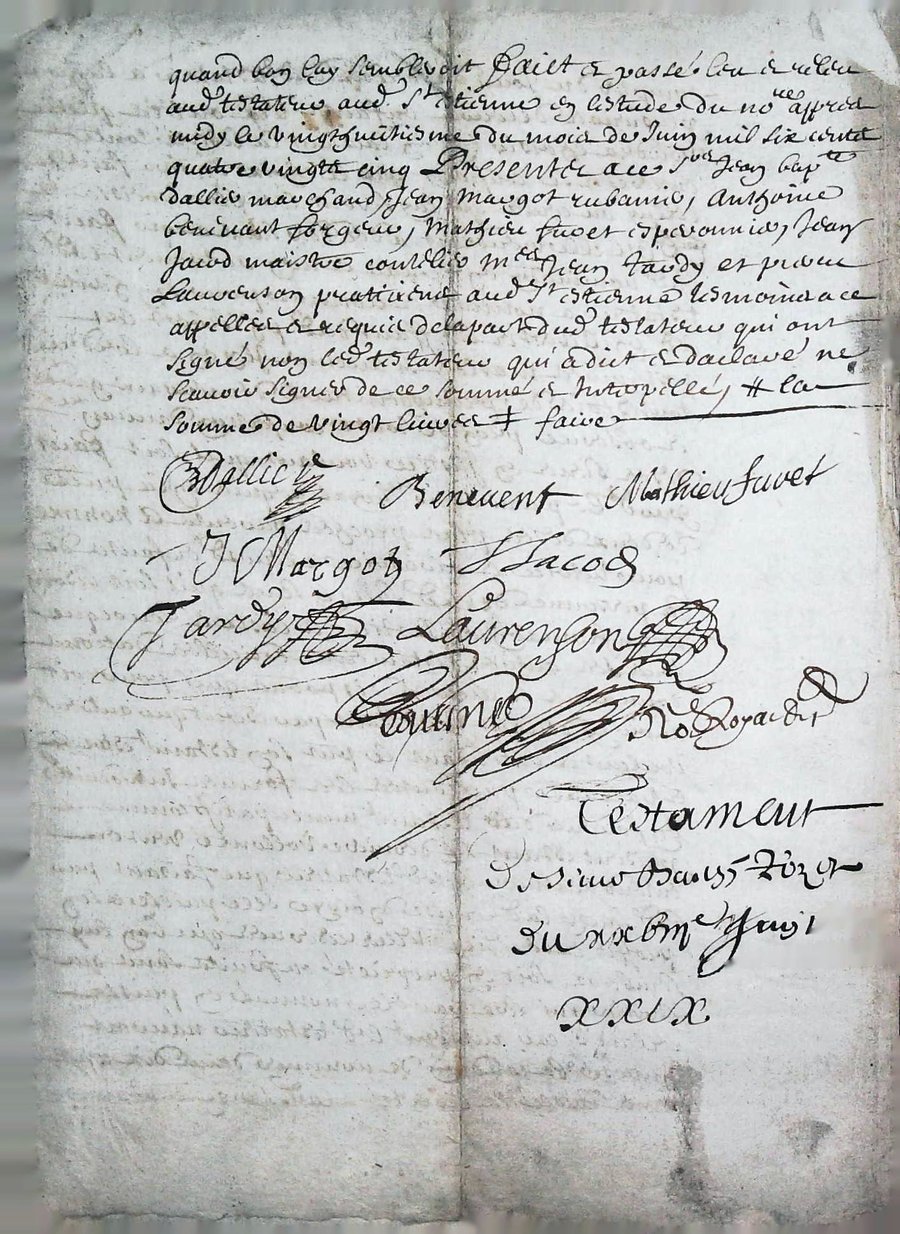 quand bon luy sembleroit Faict et passé leu et releu
aud testateur aud St Estienne en lestude du nore appres
midy le vingthuitiesme du mois de Juin mil six cents
quatre vingts cinq Presents a ce Sr Jean bapte
dallier marchand, Jean Margot rubanier, Anthoine
benevant forgeur, Mathieu fuvet esperonnier, Jean
Jacod maistre coutelier Mes Jean tardy et pierre
Laurenson praticiens aud St Estienne tesmoins a ce
appellés et requis de la part dud testateur qui ont
signé non led testateur qui a dict et daclaré ne
scavoir signer de ce sommé et Interpellé, # la
somme de vingt livres ‡ faire
Dallier
Benevent Mathieu fuvet
J Margot J Jacod
Tardy Laurenson
Testament
de sieur
du Juin
XXIX